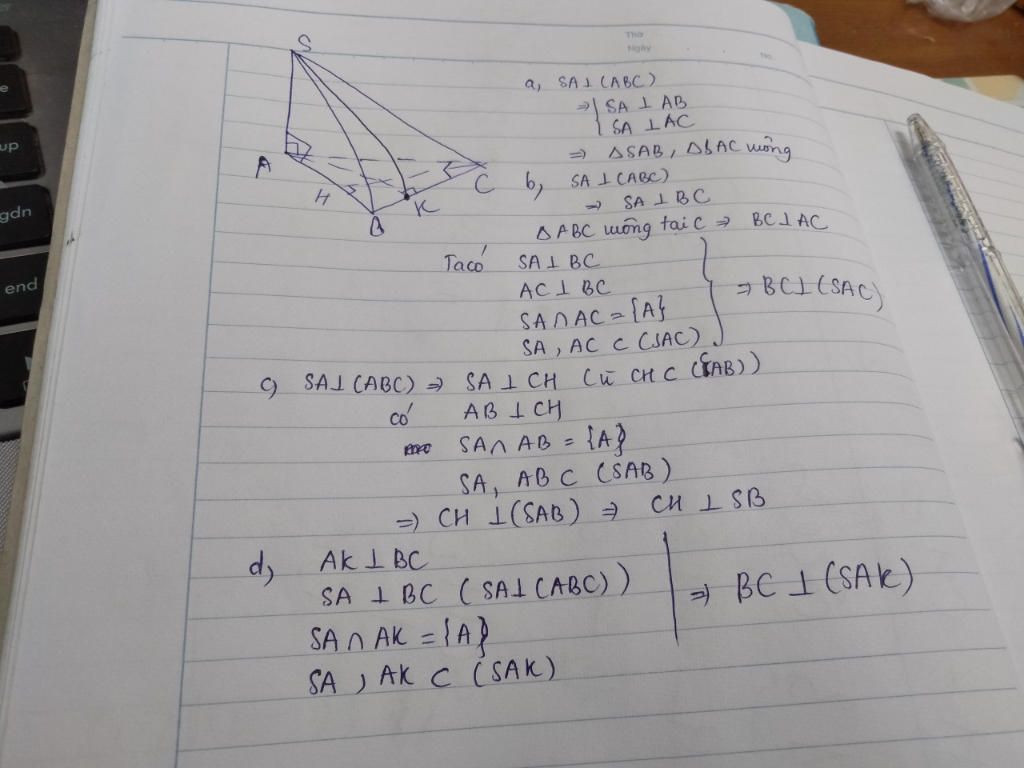 Thứ
Ngày
No.
S
A
H
B
K
C
a, SA ⊥ (ABC)
⇒ SA ⊥ AB
SA ⊥ AC
⇒ ΔSAB, ΔSAC vuông
b, SA ⊥ (ABC)
⇒ SA ⊥ BC
ΔABC vuông tại C ⇒ BC ⊥ AC
Ta có SA ⊥ BC
AC ⊥ BC
SA ∩ AC = {A}
SA, AC ⊂ (SAC)
⇒ BC ⊥ (SAC)
c) SA ⊥ (ABC) ⇒ SA ⊥ CH (vì CH ⊂ (SAB))
có AB ⊥ CH
SA ∩ AB = {A}
SA, AB ⊂ (SAB)
⇒ CH ⊥ (SAB) ⇒ CH ⊥ SB
d, AK ⊥ BC
SA ⊥ BC (SA ⊥ (ABC))
SA ∩ AK = {A}
SA, AK ⊂ (SAK)
⇒ BC ⊥ (SAK)
e
up
gdn
end